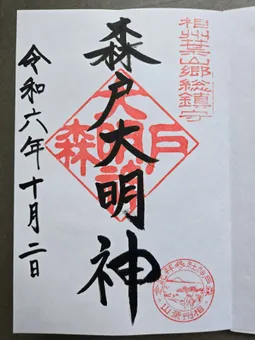 相州葉山郷総鎮守
森戸大明神
森戸大明神
令和六年十月二日